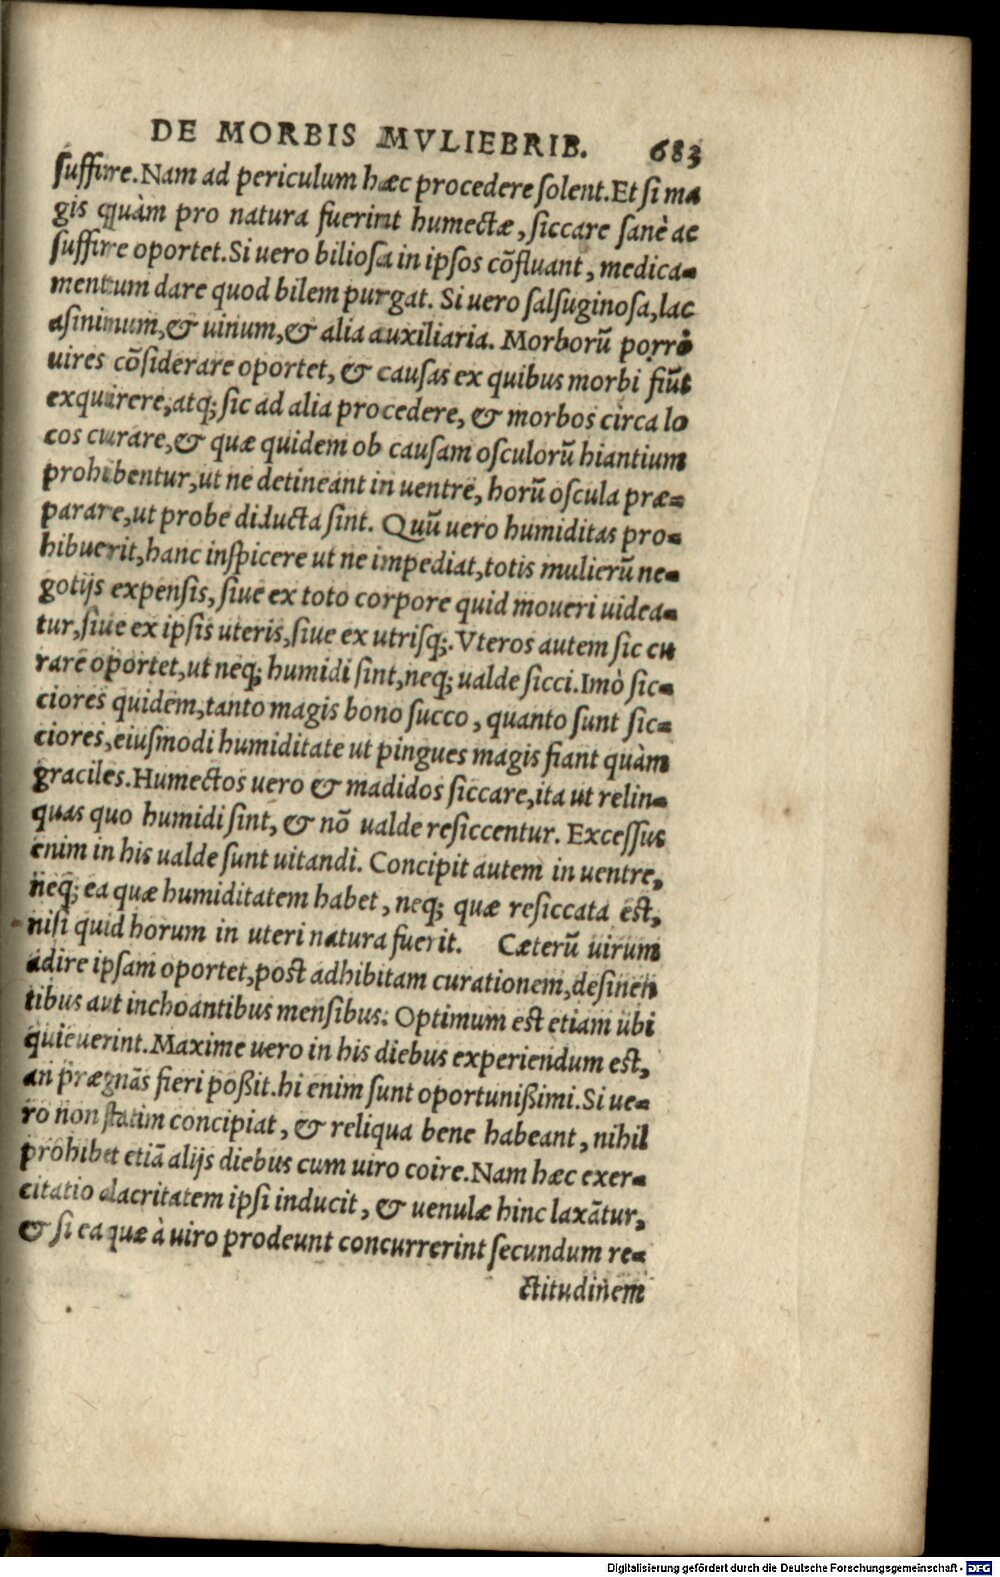 DE MORBIS MVLIEBRIB. 683
suffire. Nam ad periculum hæc procedere solent. Et si ma
gis quàm pro natura fuerint humectæ, siccare sanè ac
suffire oportet. Si uero biliosa in ipsos cõfluant, medica-
mentum dare quod bilem purgat. Si uero salsuginosa, lac
asininum, & uinum, & alia auxiliaria. Morborũ porrò
uires cõsiderare oportet, & causas ex quibus morbi fiũt
exquirere, atq; sic ad alia procedere, & morbos circa lo
cos curare, & quæ quidem ob causam osculorũ hiantium
prohibentur, ut ne detineant in uentre, horũ oscula præ-
parare, ut probe diducta sint. Quũ uero humiditas pro-
hibuerit, hanc inspicere ut ne impediat, totis mulierũ ne-
gotijs expensis, siue ex toto corpore quid moueri uidea-
tur, siue ex ipsis uteris, siue ex utrisq;. Vteros autem sic cu
rare oportet, ut neq; humidi sint, neq; ualde sicci. Imò sic-
ciores quidem, tanto magis bono succo, quanto sunt sic-
ciores, eiusmodi humiditate ut pingues magis fiant quàm
graciles. Humectos uero & madidos siccare, ita ut relin-
quas quo humidi sint, & nõ ualde resiccentur. Excessus
enim in his ualde sunt uitandi. Concipit autem in uentre,
neq; ea quæ humiditatem habet, neq; quæ resiccata est,
nisi quid horum in uteri natura fuerit. Cæterũ uirum
adire ipsam oportet, post adhibitam curationem, desinen
tibus aut inchoantibus mensibus. Optimum est etiam ubi
quieuerint. Maxime uero in his diebus experiendum est,
an prægnãs fieri poßit. hi enim sunt oportunißimi. Si ue-
ro non statim concipiat, & reliqua bene habeant, nihil
prohibet etiã alijs diebus cum uiro coire. Nam hæc exer-
citatio alacritatem ipsi inducit, & uenulæ hinc laxãtur,
& si ea quæ à uiro prodeunt concurrerint secundum re-
ctitudinem
Digitalisierung gefördert durch die Deutsche Forschungsgemeinschaft - DFG